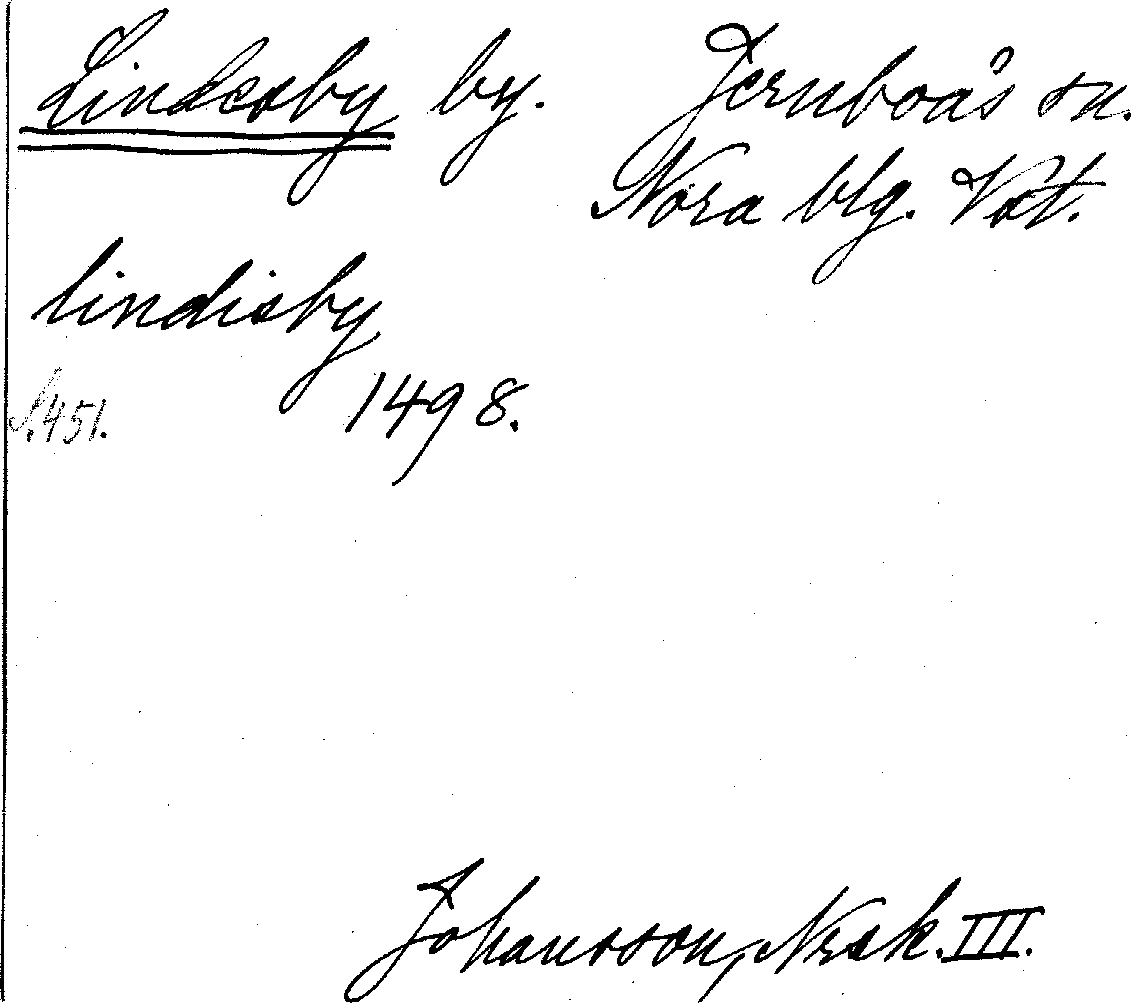 Lindesby by. Jernboås sn.
Nora blg. Vst.
lindisby
1498.
S.451.
Johansson, Nrsk. III.